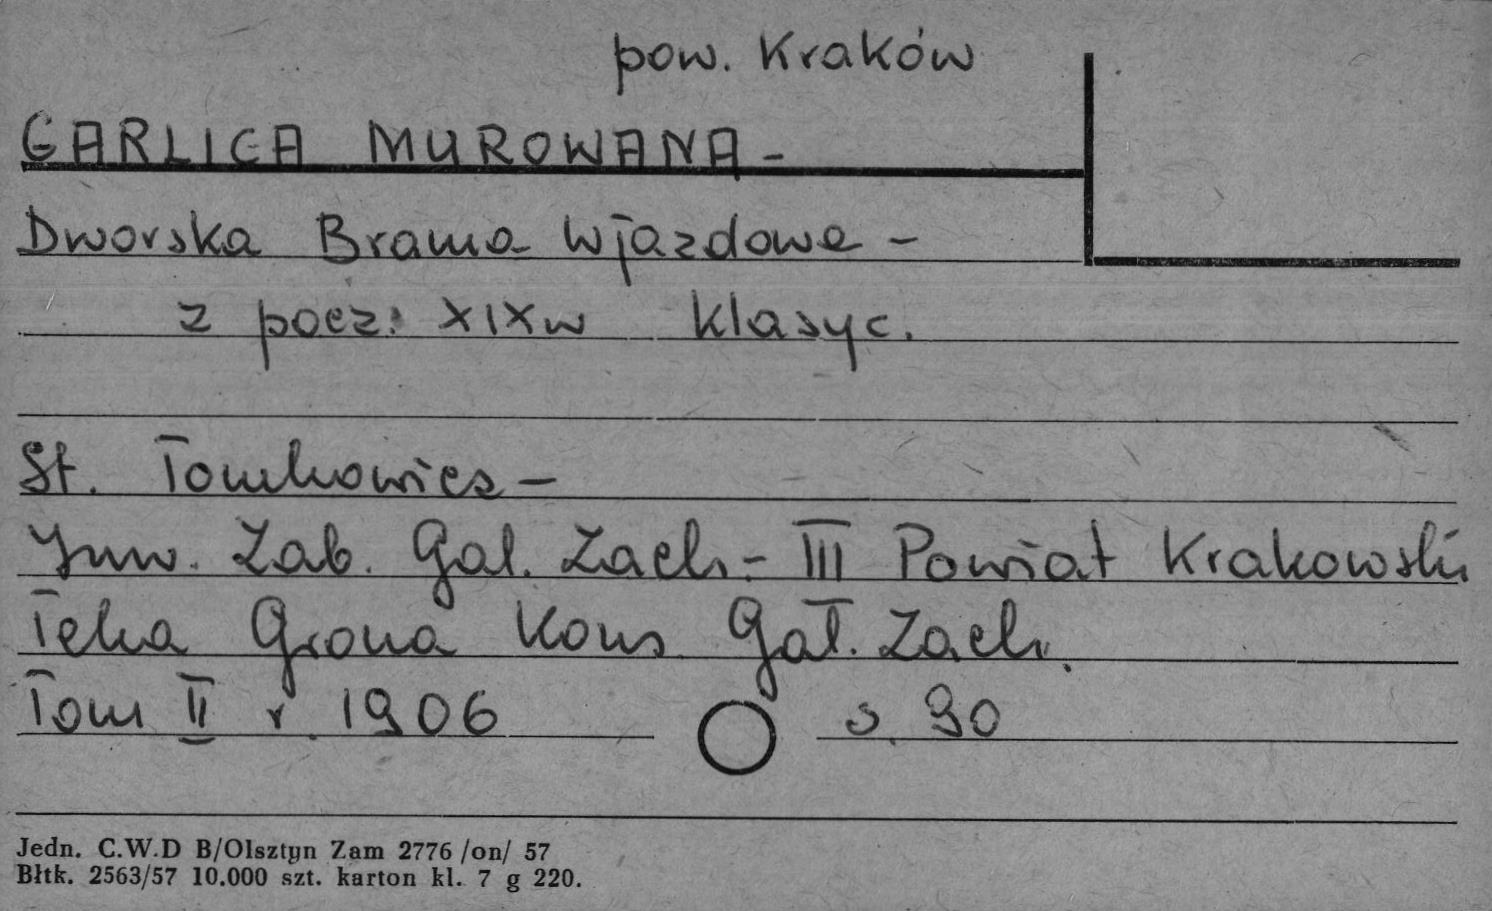 pow. Kraków
GARLICA MUROWANA -
Dworska Brama Wjazdowa -
z pocz. XIX w klasyc.
St. Tomkowicz -
Inw. Zab. Gal. Zach. - III Powiat Krakowski
Teka Grona Kons Gal. Zach.
Tom II r. 1906 s. 90
Jedn. C.W.D B/Olsztyn Zam 2776 /on/ 57
Błtk. 2563/57 10.000 szt. karton kl. 7 g 220.